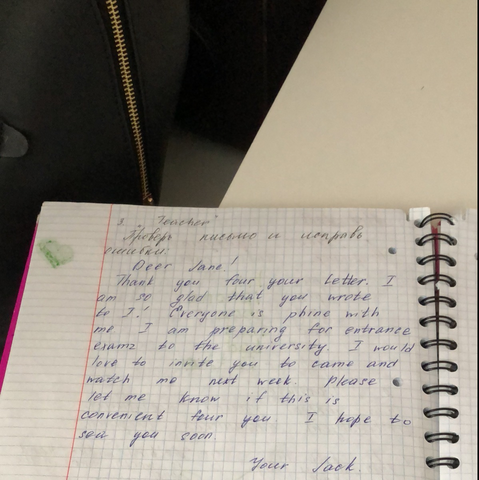 3. "Teacher"
Проверь письмо и исправь
ошибки.
Deer Jane!
Thank you four your letter. I
am so glad that you wrote
to I! Everyone is phine with
me I am preparing for entrance
examz to the university I would
love to invite you to came and
watch me next week. Please
let me know if this is
convenient four you I hope to
soa you soon.
Your Jack.